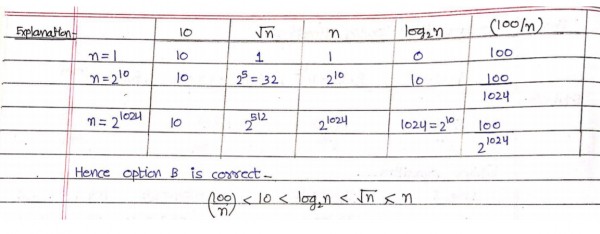 Explanation:- 10 √n n log₂n (100/n)
n=1 10 1 1 0 100
n=2¹⁰ 10 2⁵ = 32 2¹⁰ 10 100
1024
n=2¹⁰²⁴ 10 2⁵¹² 2¹⁰²⁴ 1024=2¹⁰ 100
2¹⁰²⁴
Hence option B is correct-
(100/n) < 10 < log₂n < √n < n